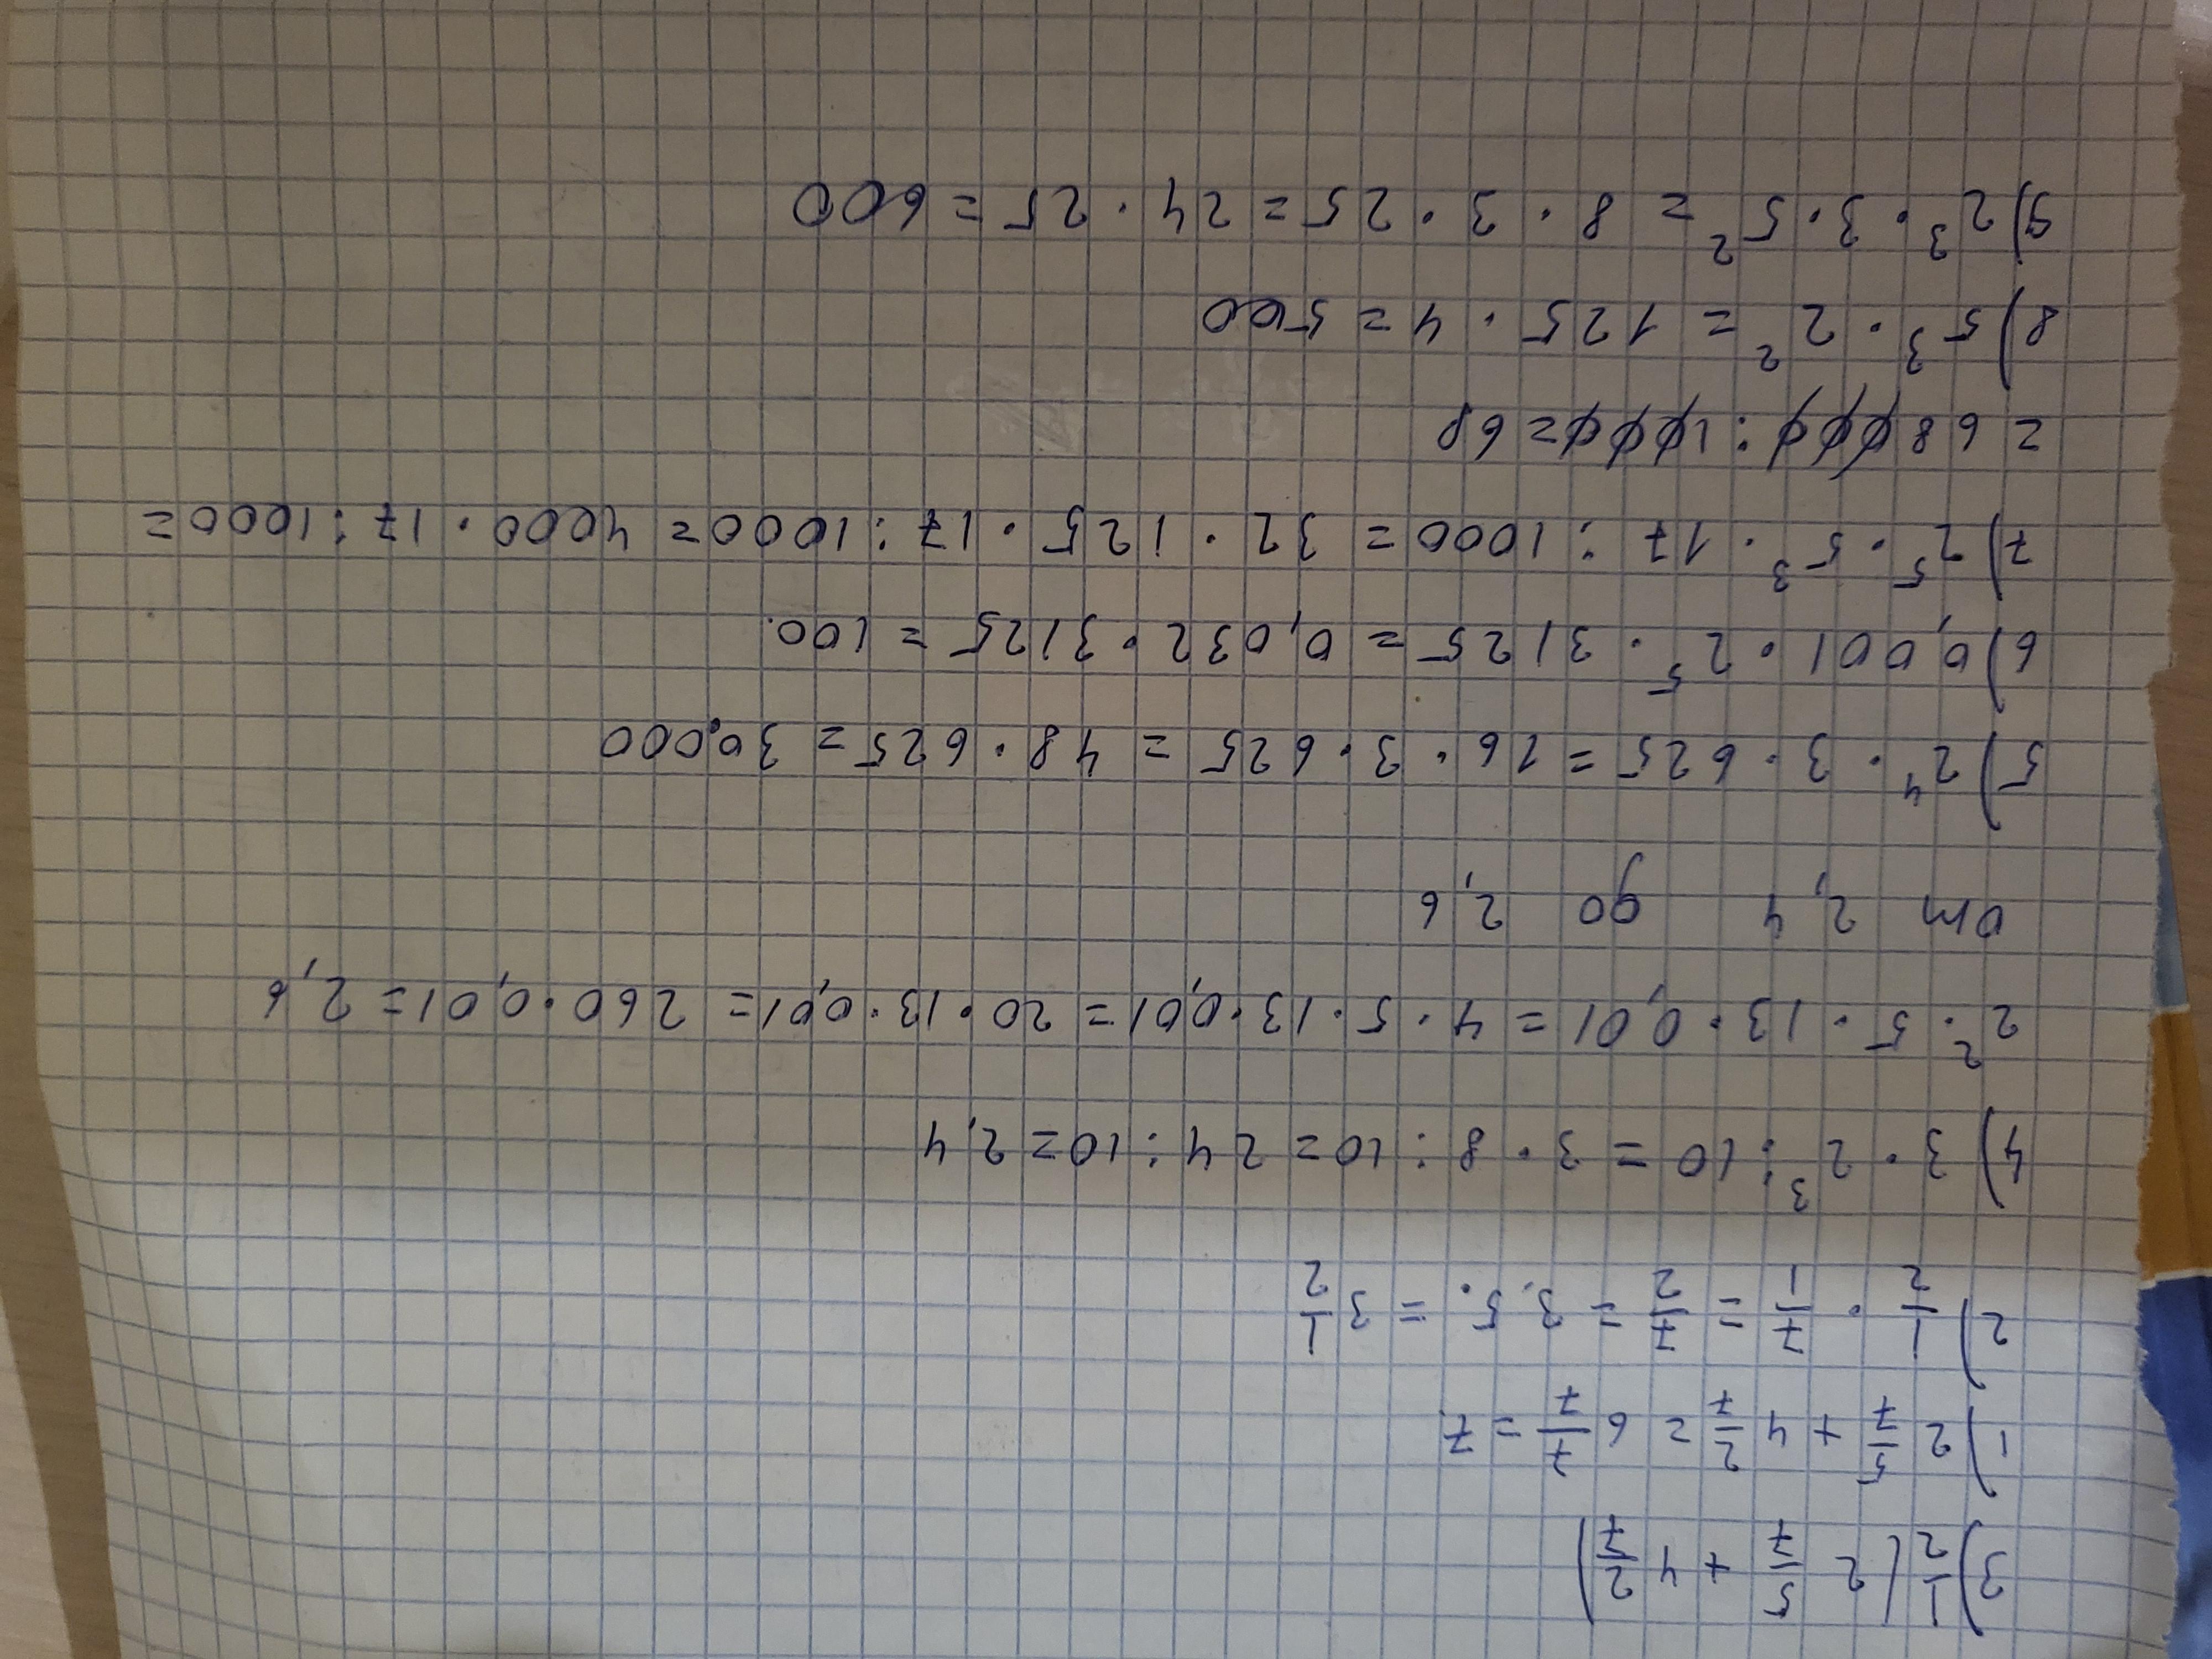 3) 1/2 (2 5/7 + 4 2/7)
1) 2 5/7 + 4 2/7 = 6 7/7 = 7
2) 1/2 · 7/1 = 7/2 = 3,5. = 3 1/2
4) 3 · 2³ : 10 = 3 · 8 : 10 = 24 : 10 = 2,4
2² · 5 · 13 · 0,01 = 4 · 5 · 13 · 0,01 = 20 · 13 · 0,01 = 260 · 0,01 = 2,6
от 2,4 до 2,6
5) 2⁴ · 3 · 625 = 16 · 3 · 625 = 48 · 625 = 30.000
6) 0,001 · 2⁵ · 3125 = 0,032 · 3125 = 100.
7) 2⁵ · 5³ · 17 : 1000 = 32 · 125 · 17 : 1000 = 4000 · 17 : 1000 =
= 68000 : 1000 = 68
8) 5³ · 2² = 125 · 4 = 500
9) 2³ · 3 · 5² = 8 · 3 · 25 = 24 · 25 = 600